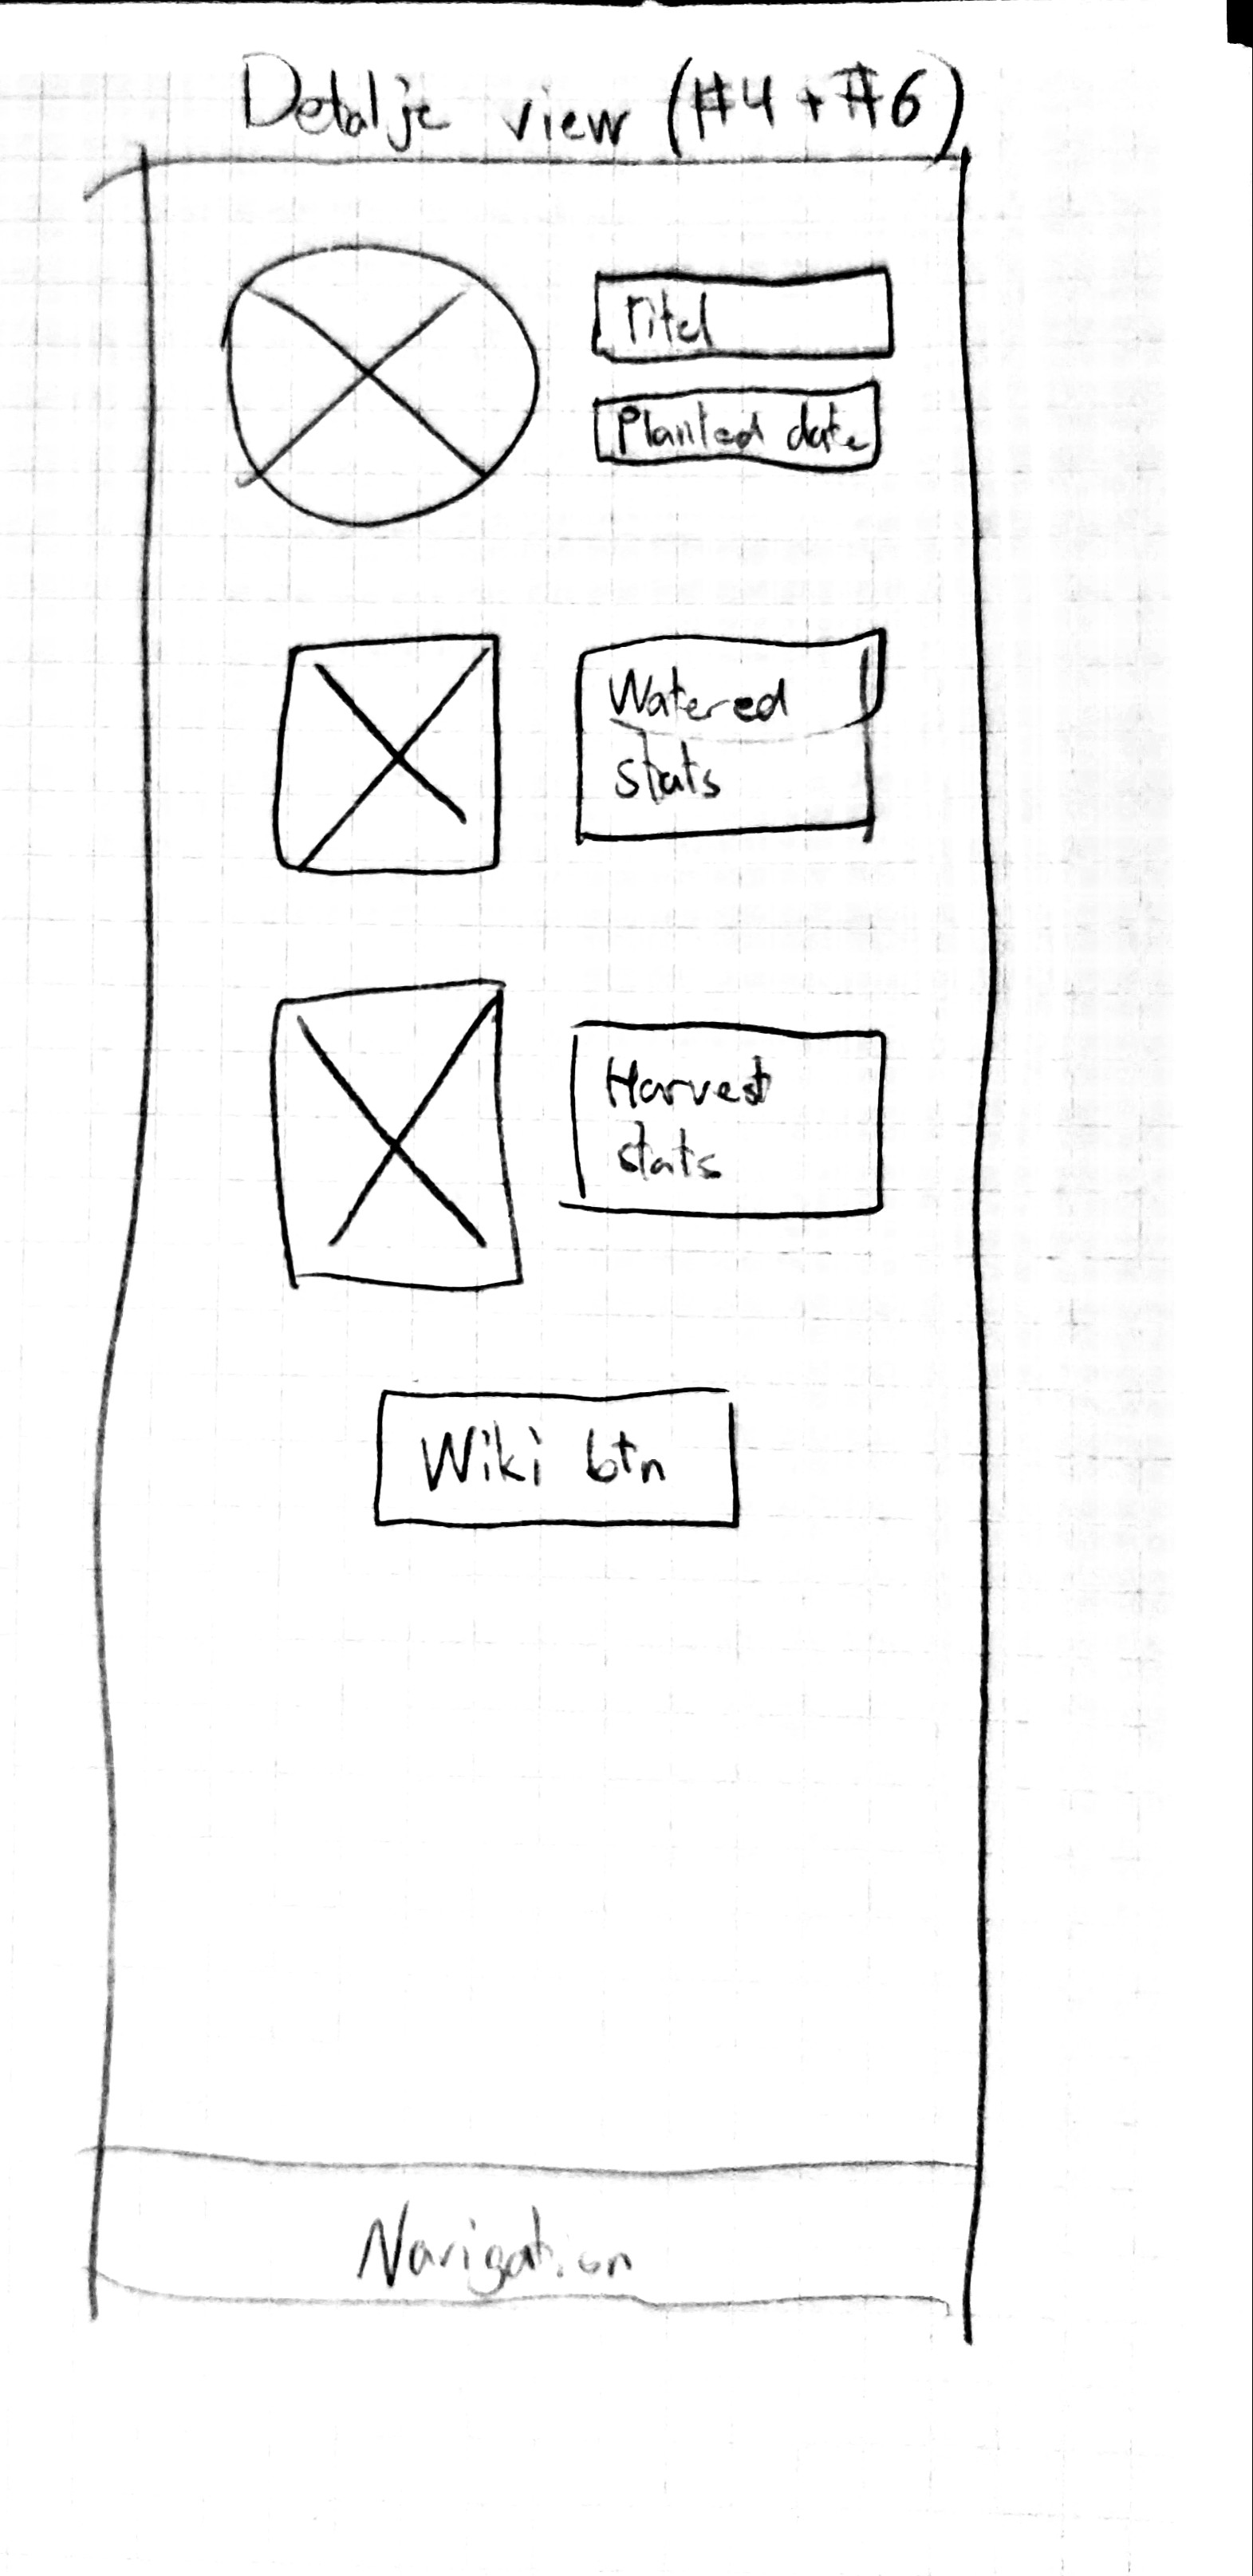 Detalje view (#4 + #6)
Titel
Planted date
Watered
stats
Harvest
stats
Wiki btn
Navigation